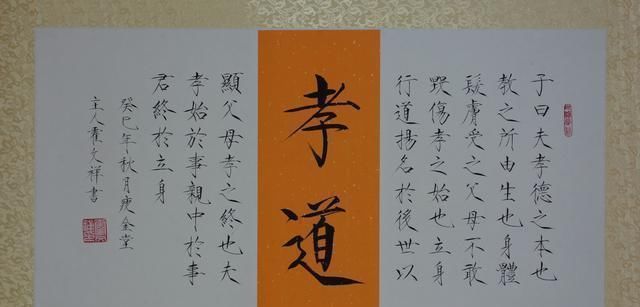 子曰夫孝德之本也
教之所由生也身體
髮膚受之父母不敢
毀傷孝之始也立身
行道揚名於後世以
孝道
顯父母孝之終也夫
孝始於事親中於事
君終於立身
癸巳年秋月庚金堂
主人霍文祥書